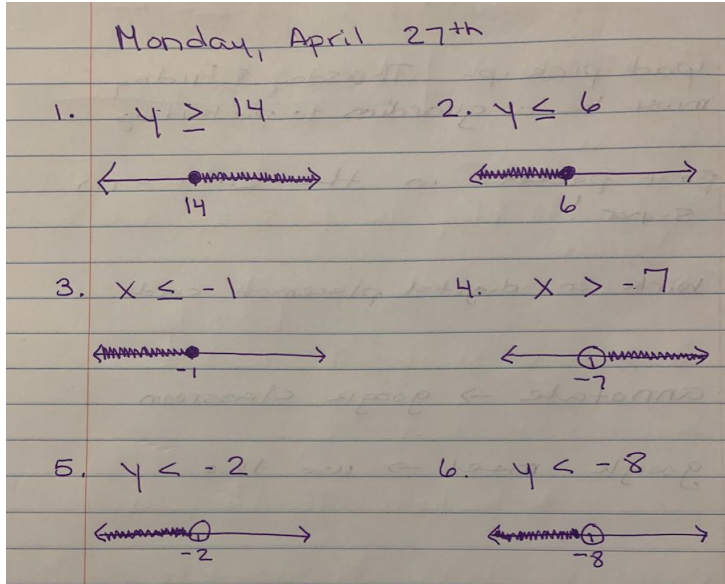 Monday, April 27th
1. y ≥ 14 2. y ≤ 6
14 6
3. x ≤ -1 4. x > -7
-1 -7
5. y < -2 6. y < -8
-2 -8